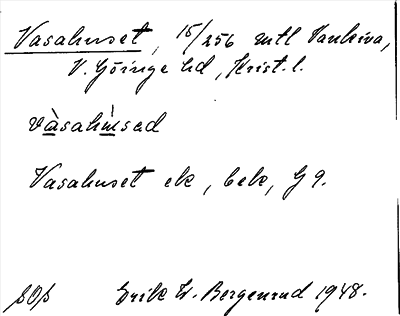 Vasahuset, 15/256 mtl Vankiva,
V. Göinge hd, Krist. l.
vàsahùsad
Vasahuset ek, bek, G 9.
Erik W. Bergenrud 1948.